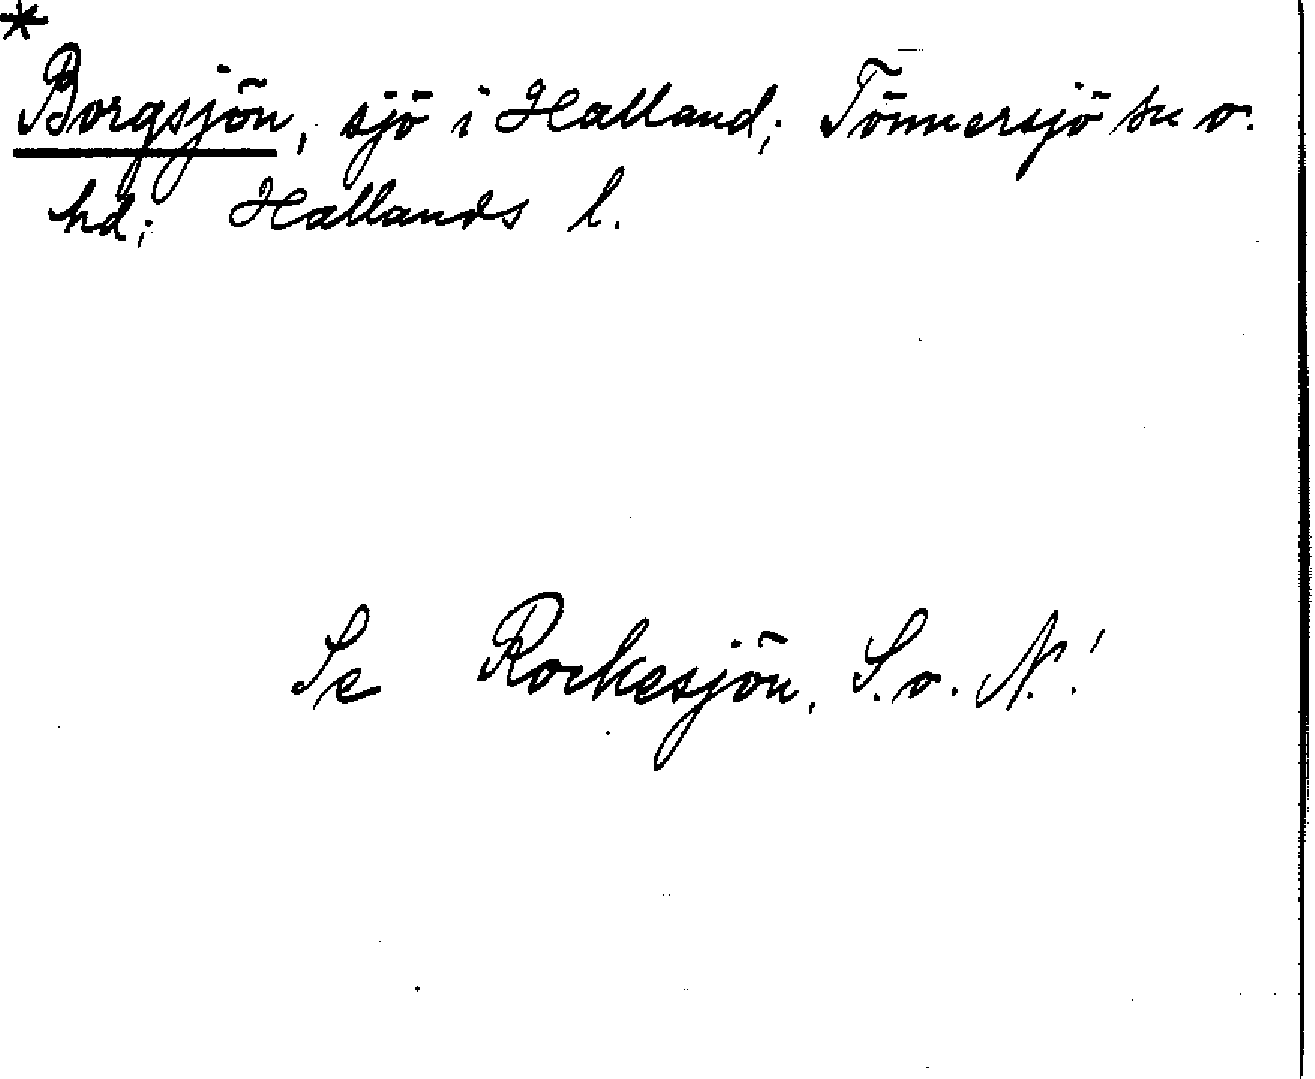 *
Borgsjön, sjö i Halland; Tönnersjö sn o.
hd; Hallands l.
Se Rockesjön, S. o. N.!